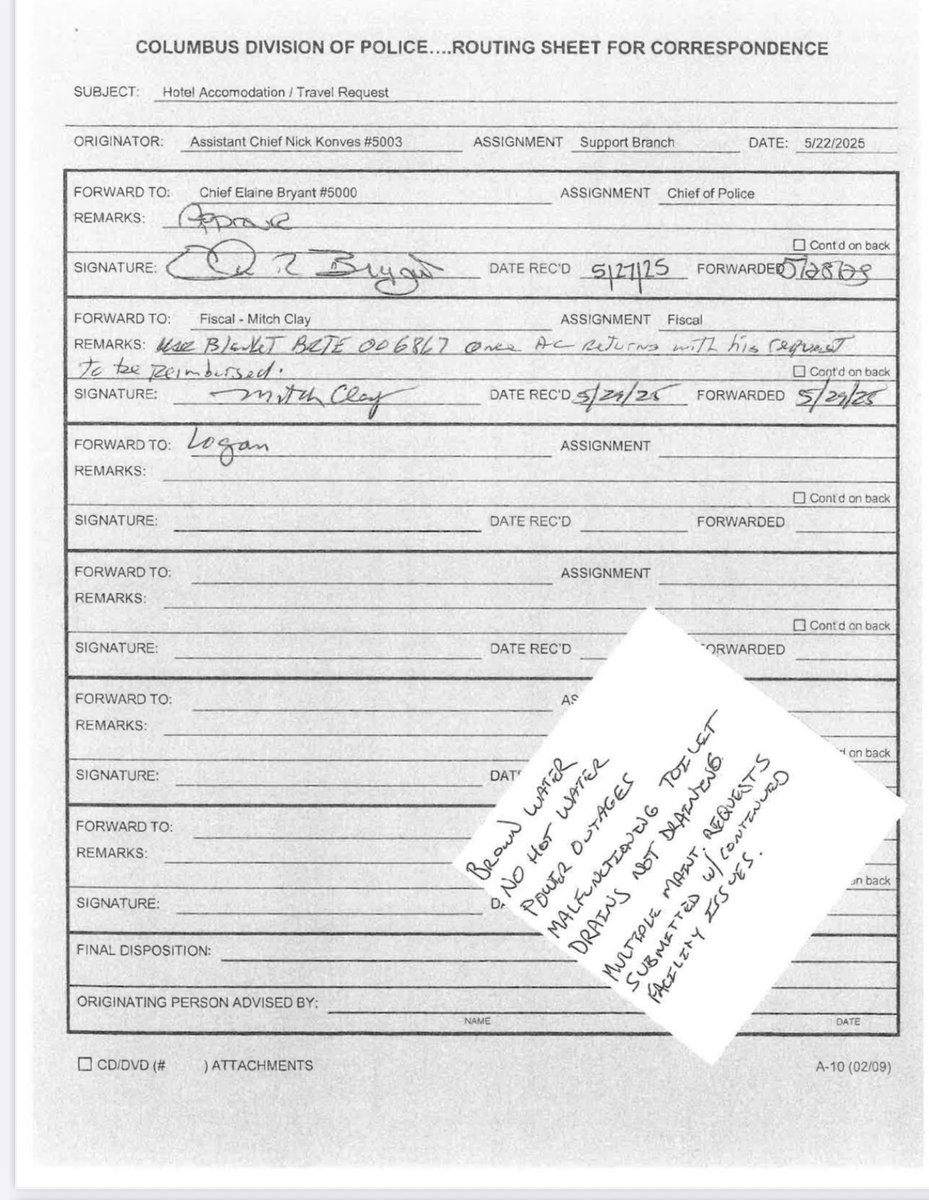 COLUMBUS DIVISION OF POLICE....ROUTING SHEET FOR CORRESPONDENCE
SUBJECT: Hotel Accomodation / Travel Request
ORIGINATOR: Assistant Chief Nick Konves #5003 ASSIGNMENT Support Branch DATE: 5/22/2025
FORWARD TO: Chief Elaine Bryant #5000 ASSIGNMENT Chief of Police
REMARKS: Approve
Cont'd on back
SIGNATURE: R Bryant DATE REC'D 5/27/25 FORWARDED 5/28/25
FORWARD TO: Fiscal - Mitch Clay ASSIGNMENT Fiscal
REMARKS: Use Blanket BRTE 006867 once AC returns with his request
to be reimbursed.
Cont'd on back
SIGNATURE: Mitch Clay DATE REC'D 5/29/25 FORWARDED 5/29/25
FORWARD TO: Logan ASSIGNMENT
REMARKS:
Cont'd on back
SIGNATURE: DATE REC'D FORWARDED
FORWARD TO: ASSIGNMENT
REMARKS:
Cont'd on back
SIGNATURE: DATE REC'D ORWARDED
FORWARD TO: AS
REMARKS:
on back
SIGNATURE: DAT
FORWARD TO:
REMARKS:
on back
SIGNATURE: DA
BROWN WATER
NO HOT WATER
POWER OUTAGES
MALFUNCTIONING TOILET
DRAINS NOT DRAINING.
MULTIPLE MAINT. REQUESTS
SUBMITTED W/ CONTINUED
FACILITY ISSUES.
FINAL DISPOSITION:
ORIGINATING PERSON ADVISED BY:
NAME DATE
CD/DVD (# ) ATTACHMENTS A-10 (02/09)